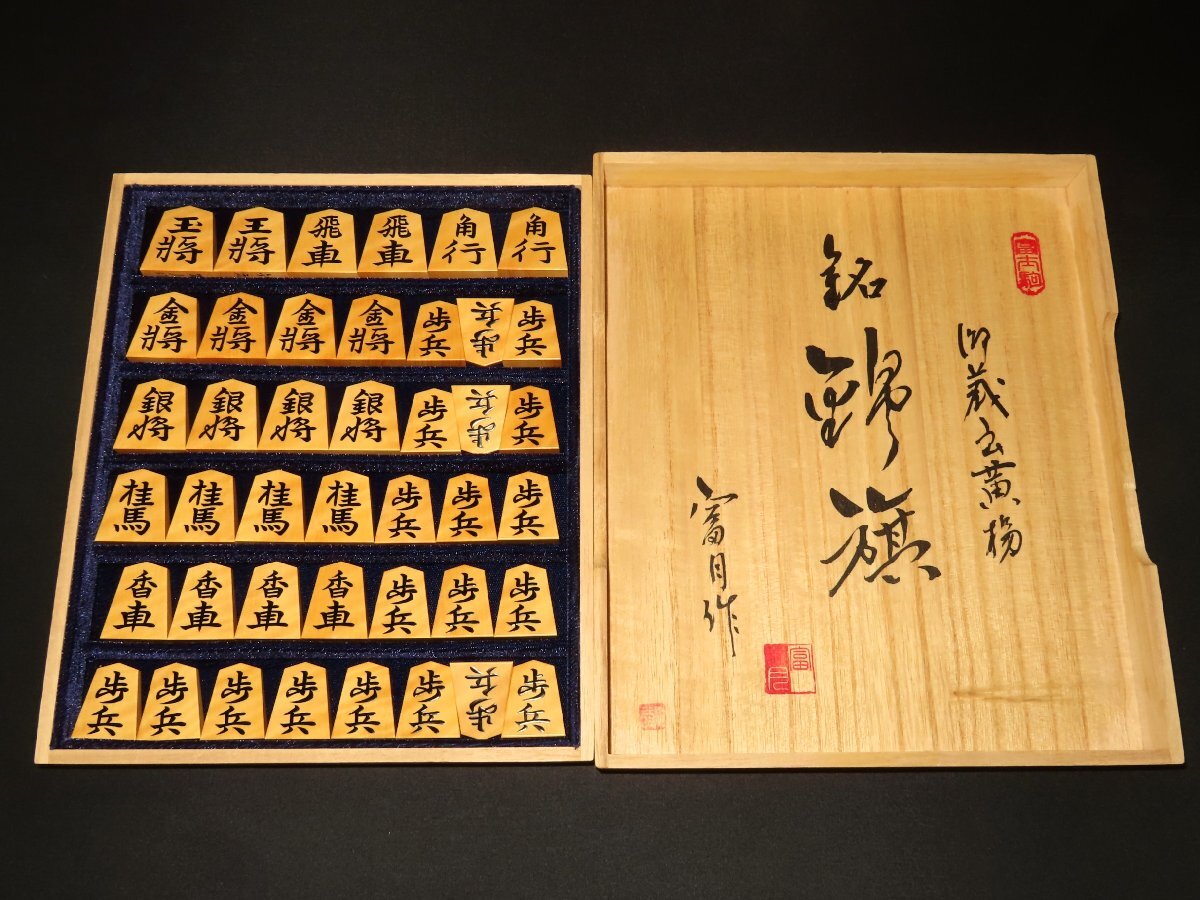 玉將 王將 飛車 飛車 角行 角行
金將 金將 金將 金將 歩兵 歩兵 歩兵
銀将 銀将 銀将 銀将 歩兵 歩兵 歩兵
桂馬 桂馬 桂馬 桂馬 歩兵 歩兵 歩兵
香車 香車 香車 香車 歩兵 歩兵 歩兵
歩兵 歩兵 歩兵 歩兵 歩兵 歩兵 歩兵 歩兵
御蔵島黄楊
銘 錦旗
富月作
富月